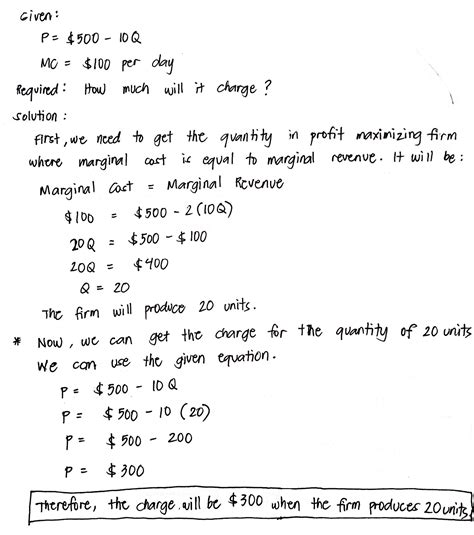 Given:
P = $500 - 10Q
MC = $100 per day
Required: How much will it charge?
Solution:
First, we need to get the quantity in profit maximizing firm
where marginal cost is equal to marginal revenue. It will be:
Marginal Cost = Marginal Revenue
$100 = $500 - 2(10Q)
20Q = $500 - $100
20Q = $400
Q = 20
The firm will produce 20 units.
* Now, we can get the charge for the quantity of 20 units
We can use the given equation.
P = $500 - 10Q
P = $500 - 10 (20)
P = $500 - 200
P = $300
Therefore, the charge will be $300 when the firm produces 20 units